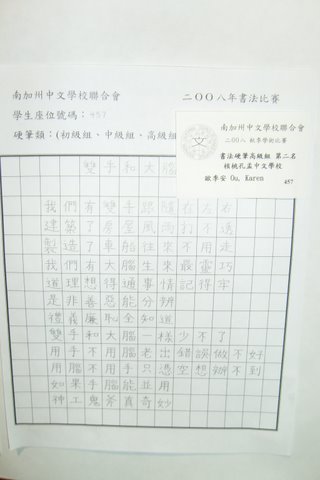 南加州中文學校聯合會 二OO八年書法比賽
學生座位號碼：457
硬筆類：(初級組、中級組、高級組
南加州中文學校聯合會
二OO八 秋季學術比賽
書法硬筆高級組 第二名
核桃孔孟中文學校
歐季安 Ou, Karen
457
雙手和大腦
我們有雙手跟隨在左右
建築了房屋風雨打不透
製造了車船往來不用走
我們有大腦生來最靈巧
道理想得通事情記得牢
是非善惡能分辨
禮義廉恥全知道
雙手和大腦一樣少不了
用手不用腦老出錯誤做不好
用腦不用手只憑空想辦不到
如果手腦能並用
神工鬼斧真奇妙